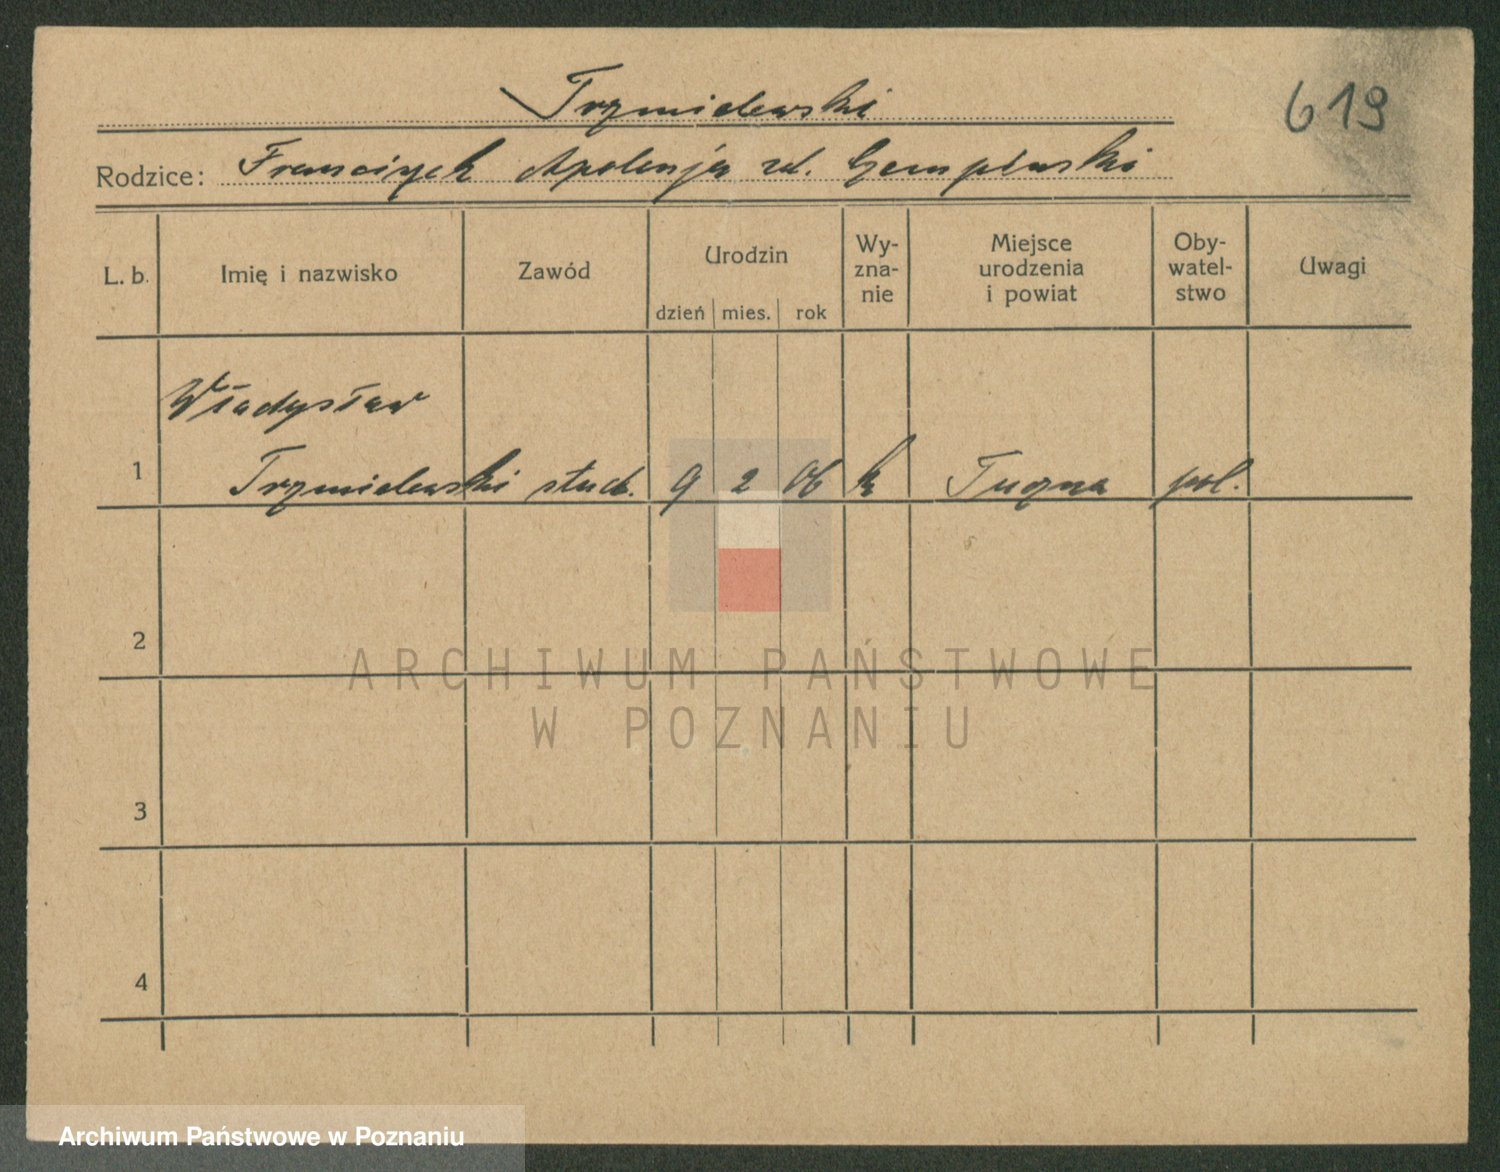 Trzmielewski
619
Rodzice: Franciszek Apolonja zd.
L. b. Imię i nazwisko Zawód Urodzin dzień mies. rok Wy-zna-nie Miejsce urodzenia i powiat Oby-watel-stwo Uwagi
Władysław
1 Trzmielewski stud. 9 2 06 k pol.
2
ARCHIWUM PAŃSTWOWE
W POZNANIU
3
4
Archiwum Państwowe w Poznaniu